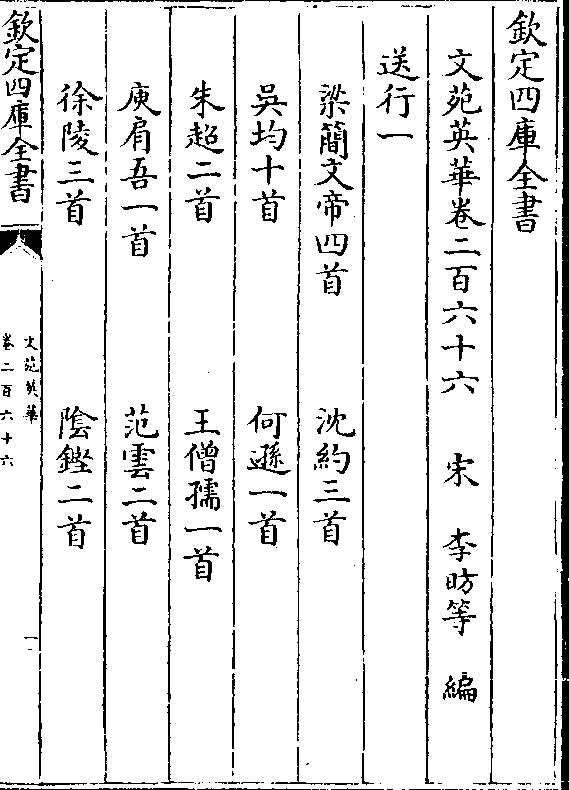 欽定四庫全書
文苑英華卷二百六十六　宋　李昉等　編
送行一
梁簡文帝四首　沈約三首
吳均十首　何遜一首
朱超二首　王僧孺一首
庾肩吾一首　范雲二首
徐陵三首　陰鏗二首
欽定四庫全書
文苑英華
卷二百六十六
一